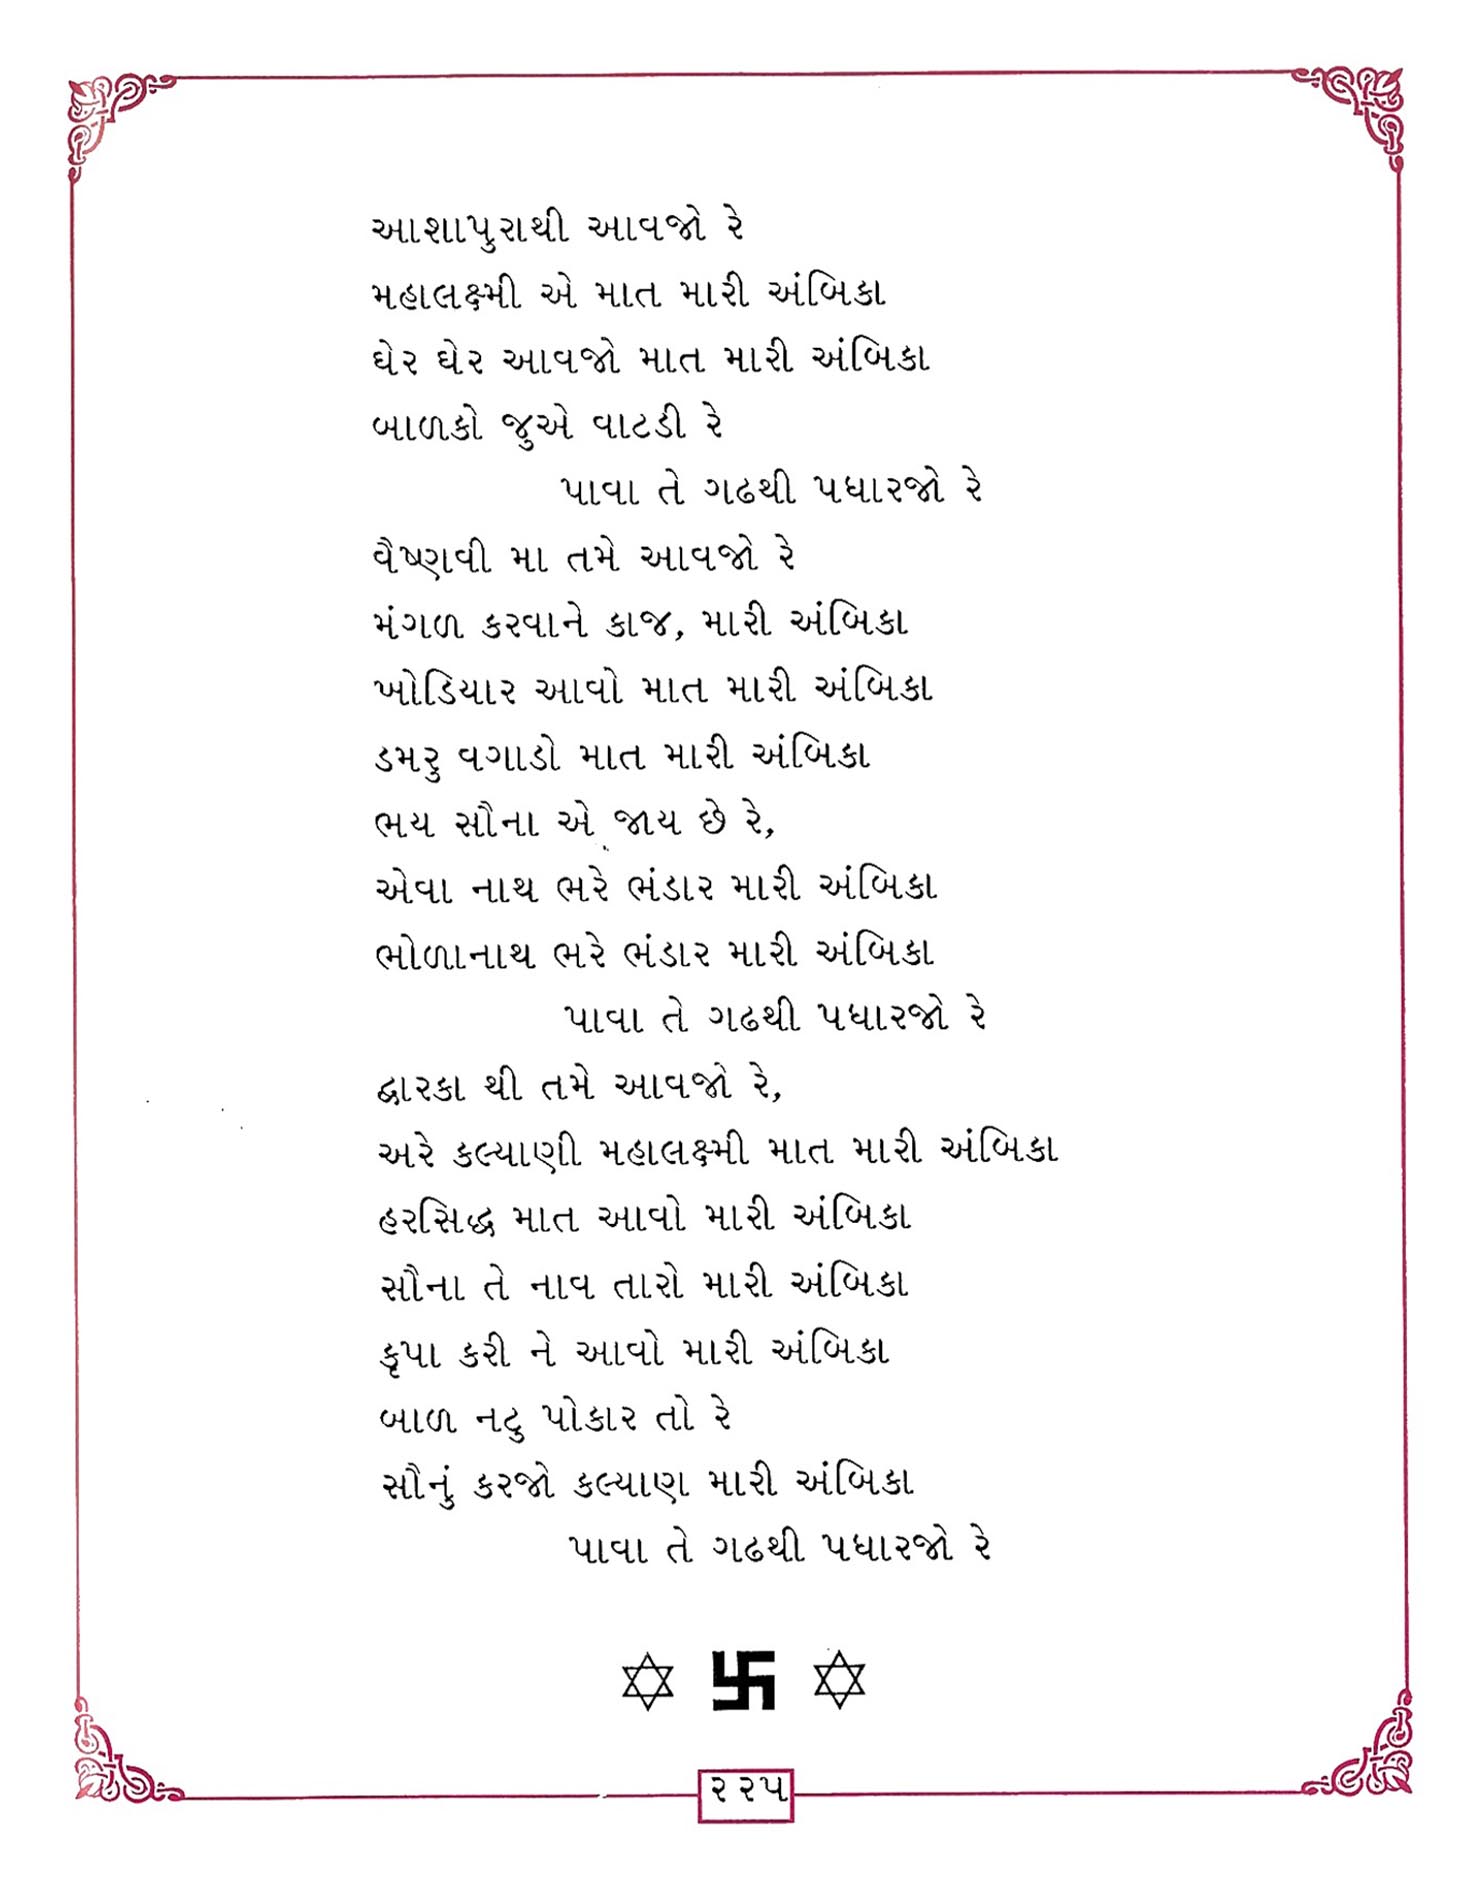 આશાપુરાથી આવજો રે
મહાલક્ષ્મી એ માત મારી અંબિકા
ઘેર ઘેર આવજો માત મારી અંબિકા
બાળકો જુએ વાટડી રે
પાવા તે ગઢથી પધારજો રે
વૈષ્ણવી મા તમે આવજો રે
મંગળ કરવાને કાજ, મારી અંબિકા
ખોડિયાર આવો માત મારી અંબિકા
ડમરુ વગાડો માત મારી અંબિકા
ભય સૌના એ જાય છે રે,
એવા નાથ ભરે ભંડાર મારી અંબિકા
ભોળાનાથ ભરે ભંડાર મારી અંબિકા
પાવા તે ગઢથી પધારજો રે
દ્વારકા થી તમે આવજો રે,
અરે કલ્યાણી મહાલક્ષ્મી માત મારી અંબિકા
હરસિદ્ધ માત આવો મારી અંબિકા
સૌના તે નાવ તારો મારી અંબિકા
કૃપા કરી ને આવો મારી અંબિકા
બાળ નટુ પોકાર તો રે
સૌનું કરજો કલ્યાણ મારી અંબિકા
પાવા તે ગઢથી પધારજો રે
૨૨૫